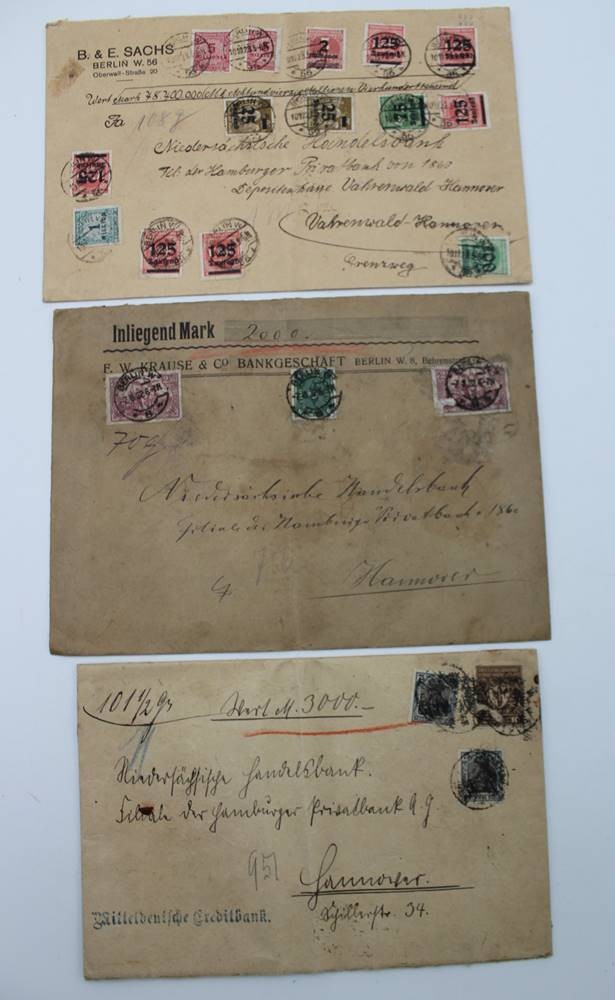 B. & E. SACHS
BERLIN W. 56
Oberwall-Straße 20
5
2
125
125
Wert Mark 78 700 000
25
25
25
125
108 g
Niedersächsische Handelsbank
Fil. der Hamburger Privatbank von 1860
Depositenkasse Vahrenwald Hannover
125
1
125
125
Vahrenwald-Hannover
Grenzweg
Inliegend Mark 2000.
F. W. KRAUSE & Co BANKGESCHÄFT BERLIN W. 8,
BERLIN W
70 g
Niedersächsische Handelsbank
Filiale der Hamburger Privatbank v. 1860
Hannover
101 1/2 gr
Wert M. 3000.-
Niedersächsische Handelsbank.
Filiale der Hamburger Privatbank A.G.
951
Hannover.
Schillerstr. 34.
Mitteldeutsche Creditbank.